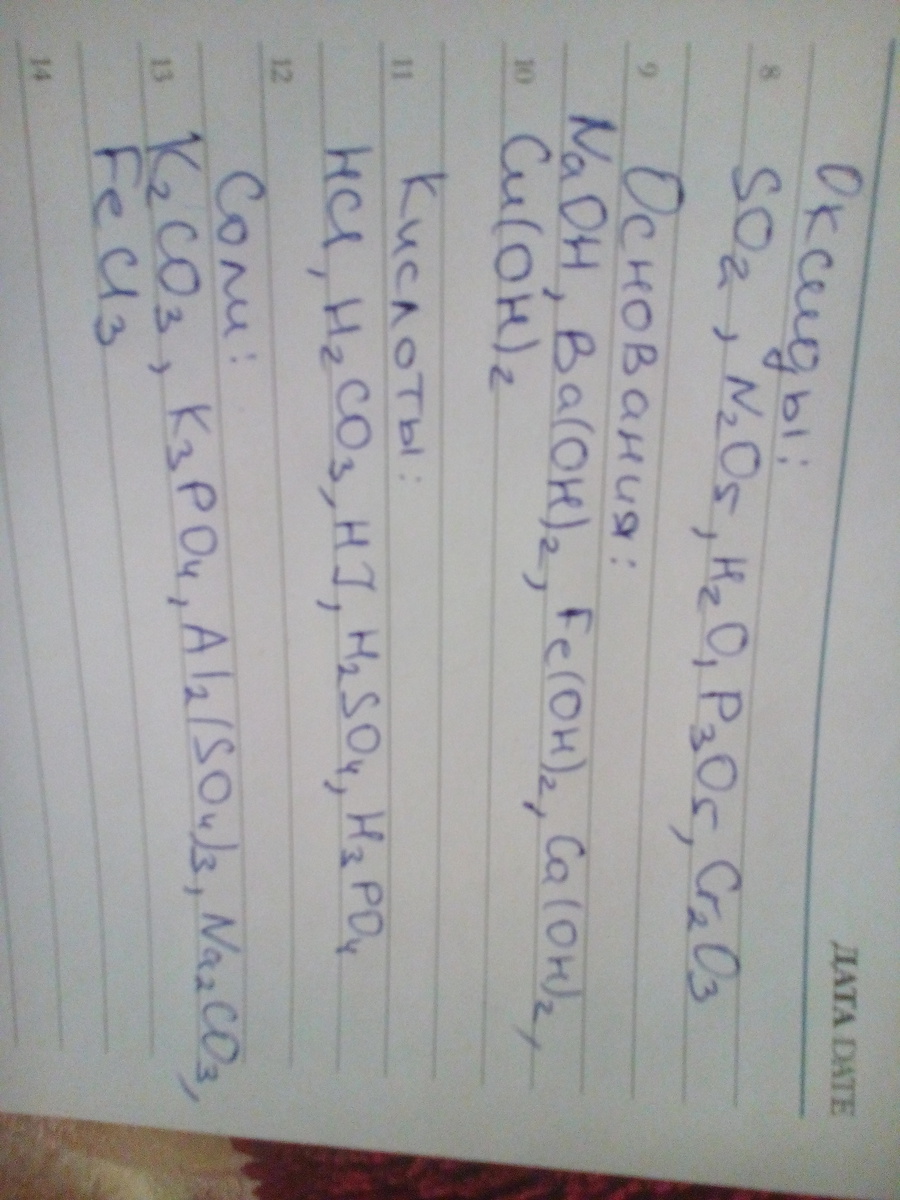 ДАТА DATE
Оксиды:
8 SO2, N2O5, H2O, P3O5, Cr2O3
9 Основания:
NaOH, Ba(OH)2, Fe(OH)2, Ca(OH)2,
10 Cu(OH)2
11 Кислоты:
HCl, H2CO3, HI, H2SO4, H3PO4
12
Соли:
13 K2CO3, K3PO4, Al2(SO4)3, Na2CO3,
FeCl3
14